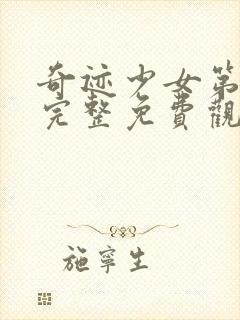 奇迹少女第
完整免費觀
施寧生